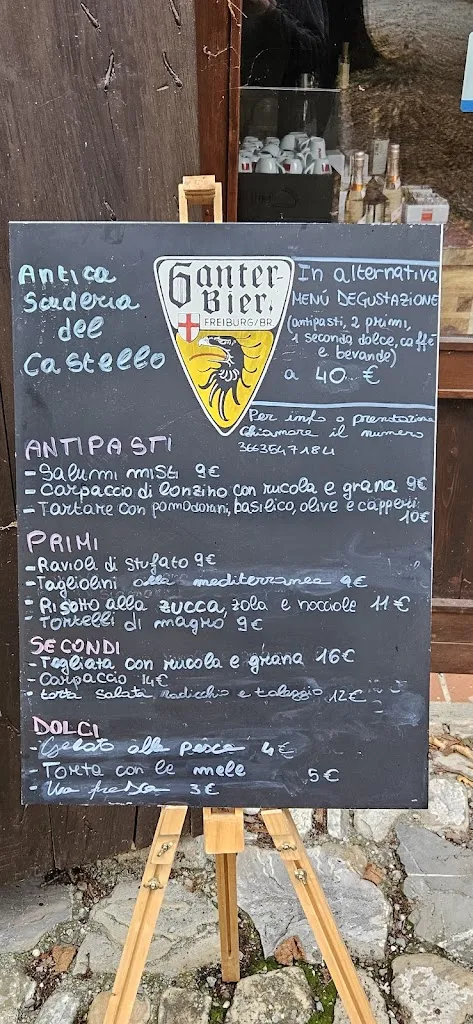 Antica
Scuderia
del
Castello
Ganter
Bier.
FREIBURG/BR
In alternativa
MENÚ DEGUSTAZIONE
(antipasti, 2 primi,
1 secondo dolce, caffè
e bevande)
a 40 €
Per info o prenotazione
chiamare il numero
ANTIPASTI
- Salumi misti 9€
- Carpaccio di lonzino con rucola e grana 9€
- Tartare con pomodorini, basilico, olive e capperi
10€
PRIMI
- Ravioli di stufato 9€
- Tagliolini alla mediterranea 9€
- Risotto alla zucca, zola e nocciole 11€
- Tortelli di magro 9€
SECONDI
- Tagliata con rucola e grana 16€
- Carpaccio 14€
- torta salata radicchio e taleggio 12€
DOLCI
- Gelato alla pesca 4€
- Torta con le mele 5€
- Uva fresca 3€